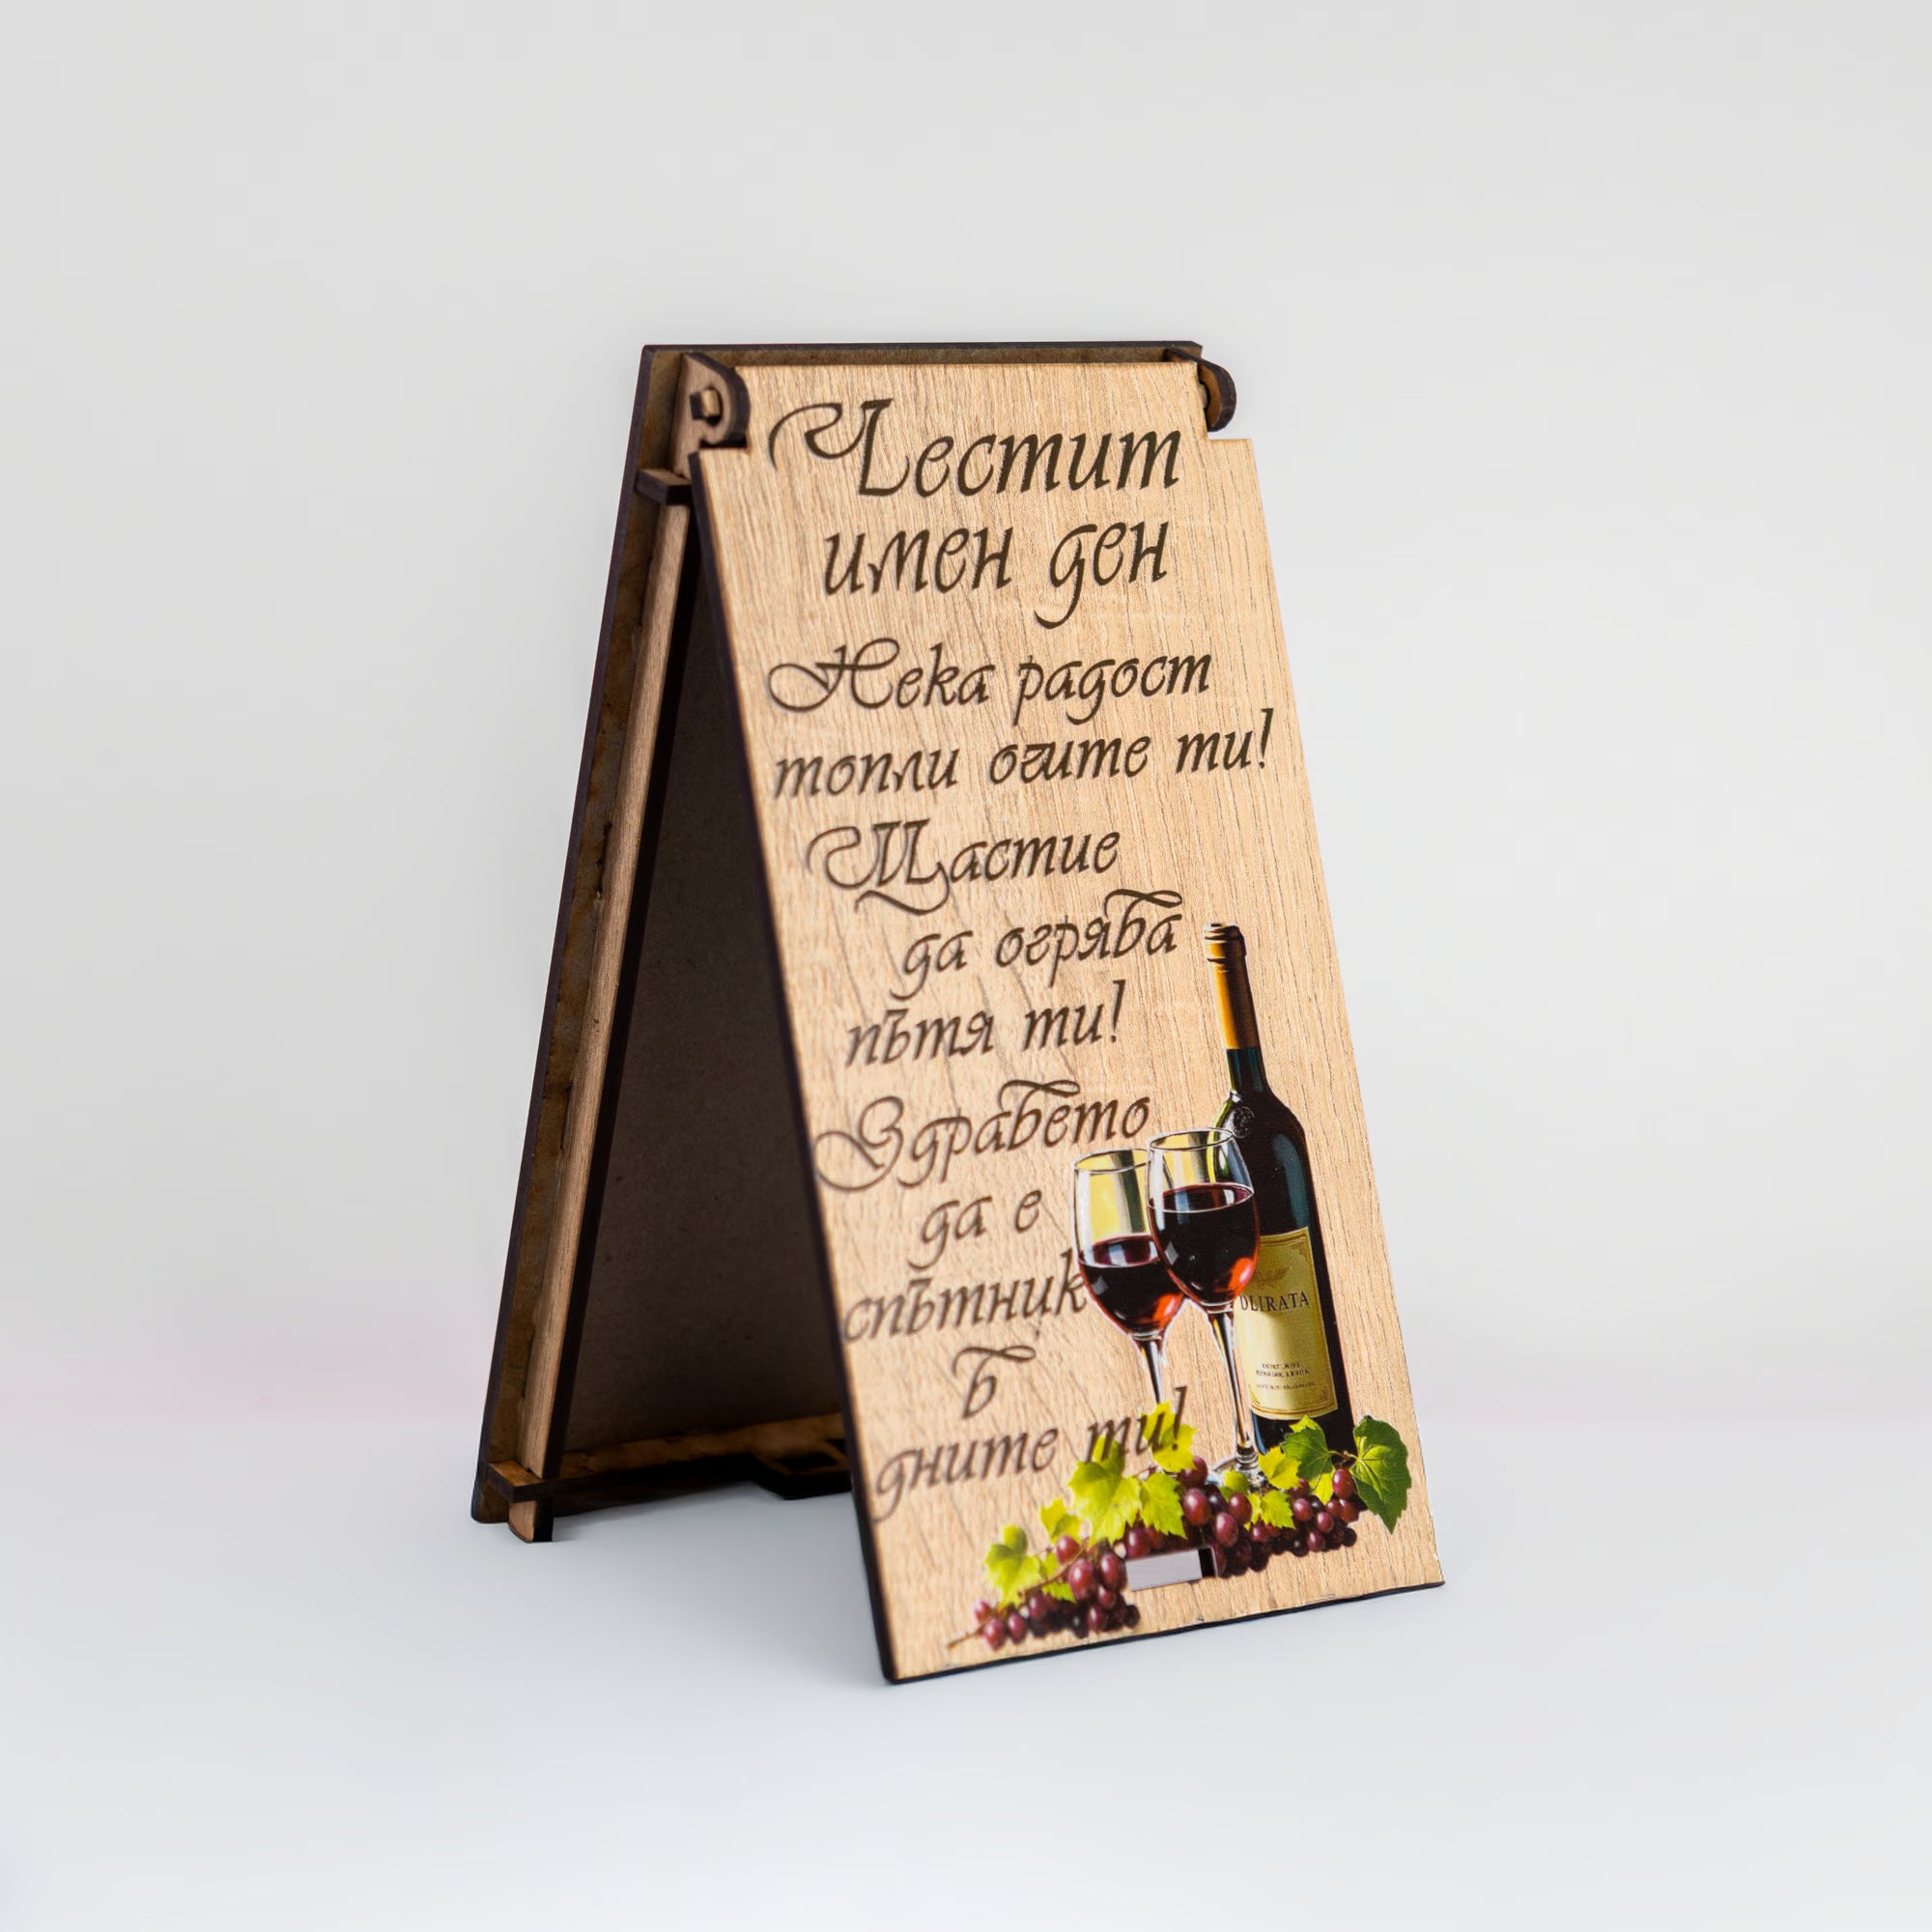 Честит
имен ден
Нека радост
топли очите ти!
Щастие
да огрява
пътя ти!
Здравето
да е
спътник
в
дните ти!
OLIRATA